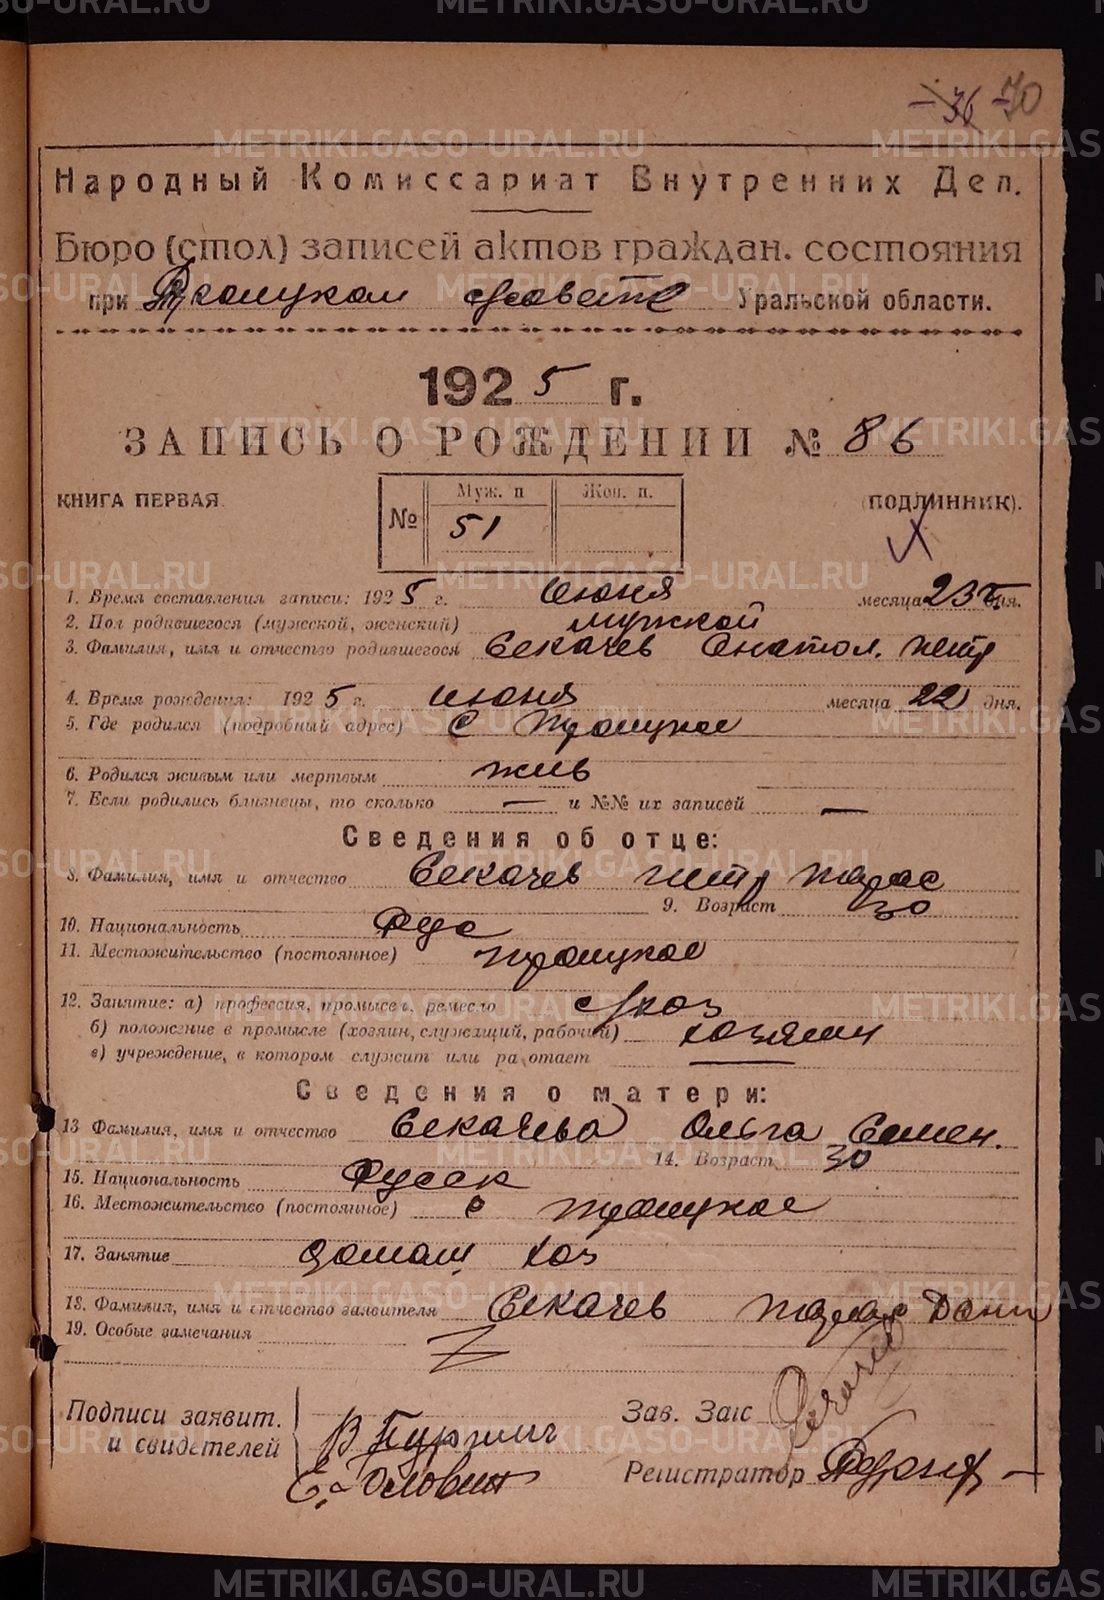 36 70
Народный Комиссариат Внутренних Дел.
Бюро (стол) записей актов граждан. состояния
при Троицком Совете Уральской области.
1925 г.
ЗАПИСЬ О РОЖДЕНИИ № 86
КНИГА ПЕРВАЯ. (ПОДЛИННИК).
№ Муж. п Жен. п.
51
1. Время составления записи: 1925 г. Июня месяца 23 дня.
2. Пол родившегося (мужской, женский) мужской
3. Фамилия, имя и отчество родившегося Секачев Анатол. Петр
4. Время рождения: 1925 г. июня месяца 22 дня.
5. Где родился (подробный адрес) С Троицкое
6. Родился живым или мертвым жив
7. Если родились близнецы, то сколько — и №№ их записей —
Сведения об отце:
8. Фамилия, имя и отчество Секачев Петр Тарас
9. Возраст 30
10. Национальность Рус
11. Местожительство (постоянное) Троицкое
12. Занятие: а) профессия, промысел, ремесло с/хоз
б) положение в промысле (хозяин, служащий, рабочий) хозяин
в) учреждение, в котором служит или работает —
Сведения о матери:
13 Фамилия, имя и отчество Секачева Ольга Семен.
14. Возраст 30
15. Национальность Русск
16. Местожительство (постоянное) с Троицкое
17. Занятие домаш хоз
18. Фамилия, имя и отчество заявителя Секачев Тарас Дани
19. Особые замечания
Подписи заявит. Зав. Загс
и свидетелей
Е. Головин Регистратор
METRIKI.GASO-URAL.RU